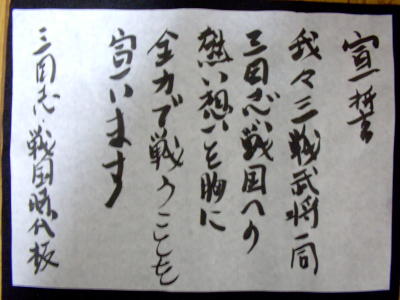 宣誓
我々三戦武将一同
三国志戦国への
熱い想いを胸に
全力で戦うことを
宣います
三国志・戦国時代板